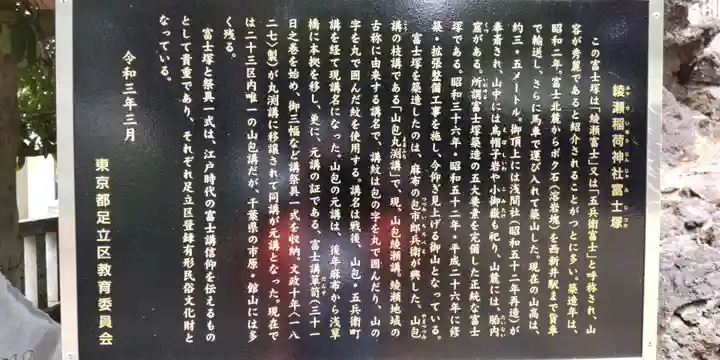 綾瀬稲荷神社富士塚
あやせいなりじんじゃふじづか
この富士塚は「綾瀬富士」又は「五兵衛富士」と呼称され、山
容が秀麗であると紹介されることがつとに多い。築造年は、
昭和二年。富士北麓からボク石(溶岩塊)を西新井駅まで貨車
で輸送し、さらに馬車で運び入れて築山した。現在の山高は、
約三・五メートル。御頂上には浅間社(昭和五十二年再造)が
奉斎され、山中には烏帽子岩や小御嶽も祀り、山麓には、胎内
窟がある。所謂富士塚築造の五大要素を完備した正統な富士
塚である。昭和三十六年・昭和五十二年・平成二十六年に修
築・拡張整備工事を施し、今仰ぎ見上げる御山となっている。
富士塚を築造したのは、麻布の包市郎兵衛が興した、山包
講の枝講である「山包丸渕講」で、現、山包綾瀬講。綾瀬地域の
古称に由来する講名で、講紋は包の字を丸で囲んだり、山の
字を丸で囲んだ紋を使用する。講名は戦後、山包・五兵衛町
講を経て現講名になった。山包の元講は、後年麻布から浅草
橋に本拠を移し、更に、元講の証である、富士講箪笥(三十一
日之巻を始め、御三幅など講祭具一式を収納、文政十年〈一八
二七〉製)が丸渕講に移譲されて同講が元講となった。現在で
は二十三区内唯一の山包講だが、千葉県の市原・館山には多
く残る。
富士塚と祭具一式は、江戸時代の富士講信仰を伝えるもの
として貴重であり、それぞれ足立区登録有形民俗文化財と
なっている。
令和三年三月
東京都足立区教育委員会